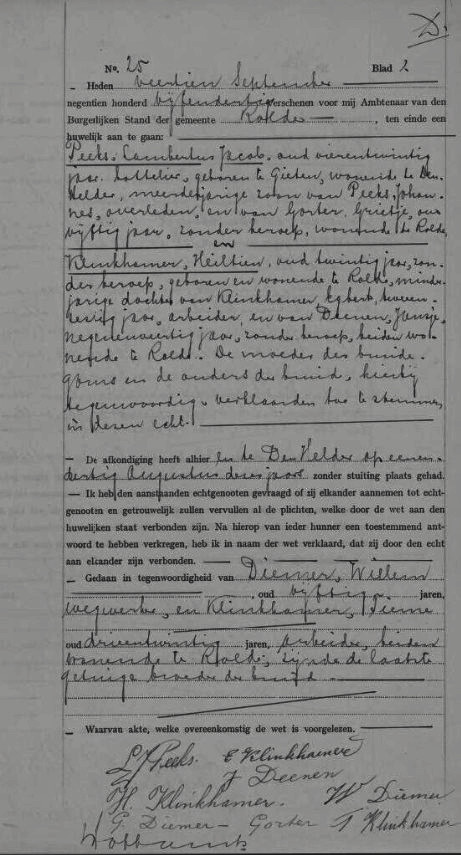 D.
No. 25 Blad 2
— Heden veertien September
negentien honderd vijfendertig verschenen voor mij Ambtenaar van den
Burgerlijken Stand der gemeente Rolde, ten einde een
huwelijk aan te gaan:
Peeks, Lambertus Jacob, oud vierentwintig
jaar, geboren te Gieten, wonende te Den
Helder, meerderjarige zoon van Peeks, Johan-
nes, overleden, en van Gorter, Grietje, oud
vijftig jaar, zonder beroep, wonende te Rolde,
en
Klinkhamer, Heiltien, oud twintig jaar, zon-
der beroep, geboren en wonende te Rolde, minder-
jarige dochter van Klinkhamer, Egbert,
jaar, arbeider, en van Deenen, Jansje,
negenenveertig jaar, zonder beroep, beiden wo-
nende te Rolde. De moeder des bruide-
goms en de ouders der bruid, hierbij
tegenwoordig, verklaarden toe te stemmen
in dezen echt.
— De afkondiging heeft alhier en te Den Helder op eenen-
dertig Augustus dezes jaars zonder stuiting plaats gehad.
— Ik heb den aanstaanden echtgenooten gevraagd of zij elkander aannemen tot echt-
genooten en getrouwelijk zullen vervullen al de plichten, welke door de wet aan den
huwelijken staat verbonden zijn. Na hierop van ieder hunner een toestemmend ant-
woord te hebben verkregen, heb ik in naam der wet verklaard, dat zij door den echt
aan elcander zijn verbonden.
— Gedaan in tegenwoordigheid van Diemer, Willem
, oud vijftig jaren,
wegwerker, en Klinkhamer,
oud drieentwintig jaren, arbeider, beiden
wonende te Rolde, zijnde de laatste
getuige broeder der bruid
— Waarvan akte, welke overeenkomstig de wet is voorgelezen.
LJ Peeks. E Klinkhamer
J Deenen
H. Klinkhamer. W Diemer
G. Diemer - Gorter T Klinkhamer